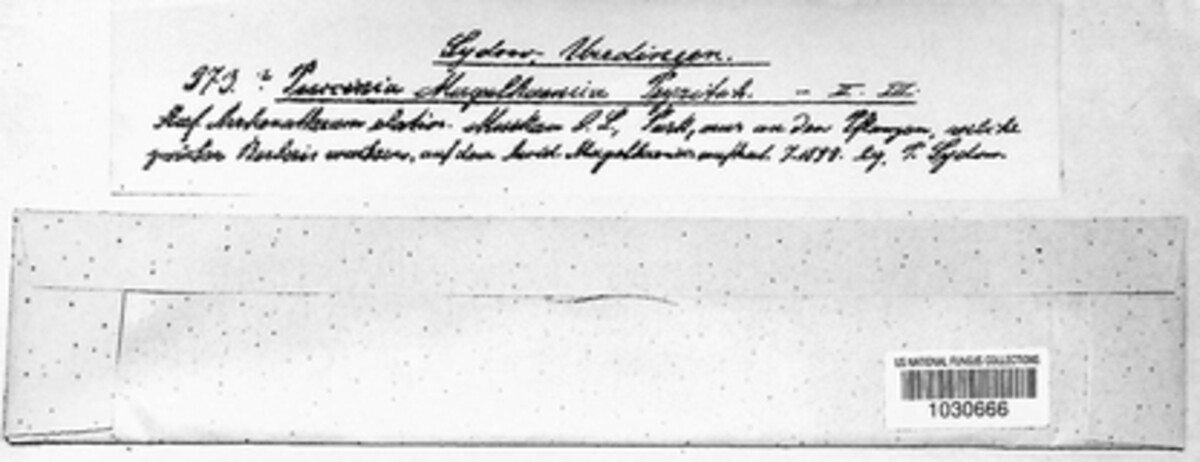 Sydow, Uredineen.
973. Puccinia Magelhaenica Peyritsch. - II. III.
Auf Arrhenatherum elatius. Muskau O.L., Park, nur an den Pflanzen, welche
zwischen Berberis wachsen, auf dem Aecid. Magelhaenicum auftrat. 7.1898. lg. P. Sydow.
US NATIONAL FUNGUS COLLECTIONS
1030666